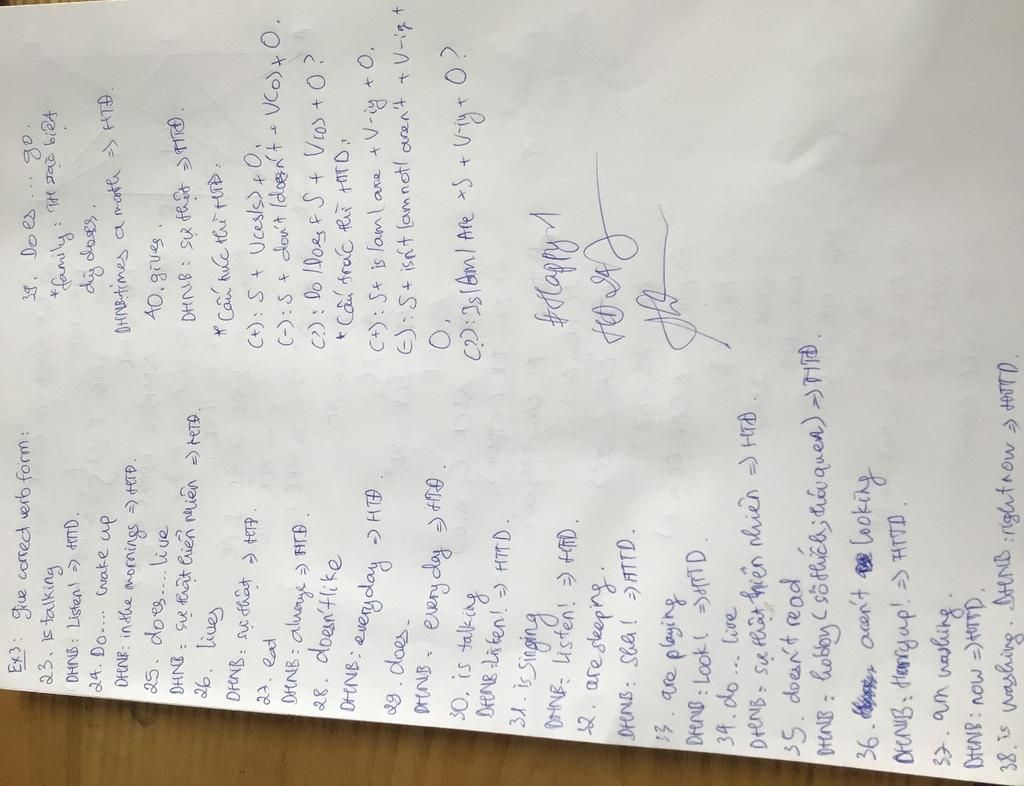 Ex3: give correct verb form:
23. is talking
DHNB: Listen! => HTTD.
24. Do.... wake up
DHNB: in the mornings => HTD.
25. does..... live
DHNB = sự thật thiên nhiên => HTĐ.
26. lives
DHNB: sự thật => HTĐ
27. eat
DHNB: always => HTĐ.
28. doesn't like
DHNB: everyday => HTĐ.
29. does.
DHNB = everyday => HTĐ.
30. is talking
DHNB: Listen! => HTTD.
31. is singing
DHNB: Listen! => HTTD
32. are sleeping.
DHNB: Shh! => HTTD.
33. are playing
DHNB: Look! => HTTD.
34. do... live
DHNB = sự thật thiên nhiên => HTĐ.
35. doesn't read
DHNB: hobby (sở thích; thói quen) => HTĐ.
36. aren't looking
DHNB: Hurry up! => HTTD.
37. am washing.
DHNB: now => HTTD.
38. is washing. DHNB: right now => HTTD.
39. Does.... go.
+ family: TH đặc biệt
dùng does.
DHNB: times a month => HTĐ.
40. gives.
DHNB: sự thật => HTĐ
* Cấu trúc thì HTĐ.
(+): S + Ves(s) + O.
(-): S + don't/doesn't + V(o) + O.
(?): Do/Does + S + V(o) + O?
* Cấu trúc thì HTTD.
(+): S + is/am/are + V-ing + O.
(-): S + isn't/am not/aren't + V-ing +
O.
(?): Is/Am/Are + S + V-ing + O?
#Happy